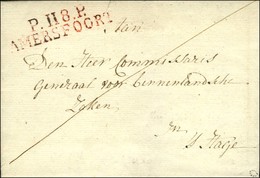 P. 118. P.
AMERSFOORT
Aan
Den Heer Commissaris
Generaal voor binnenlandsche
Zaken
In
s Hage